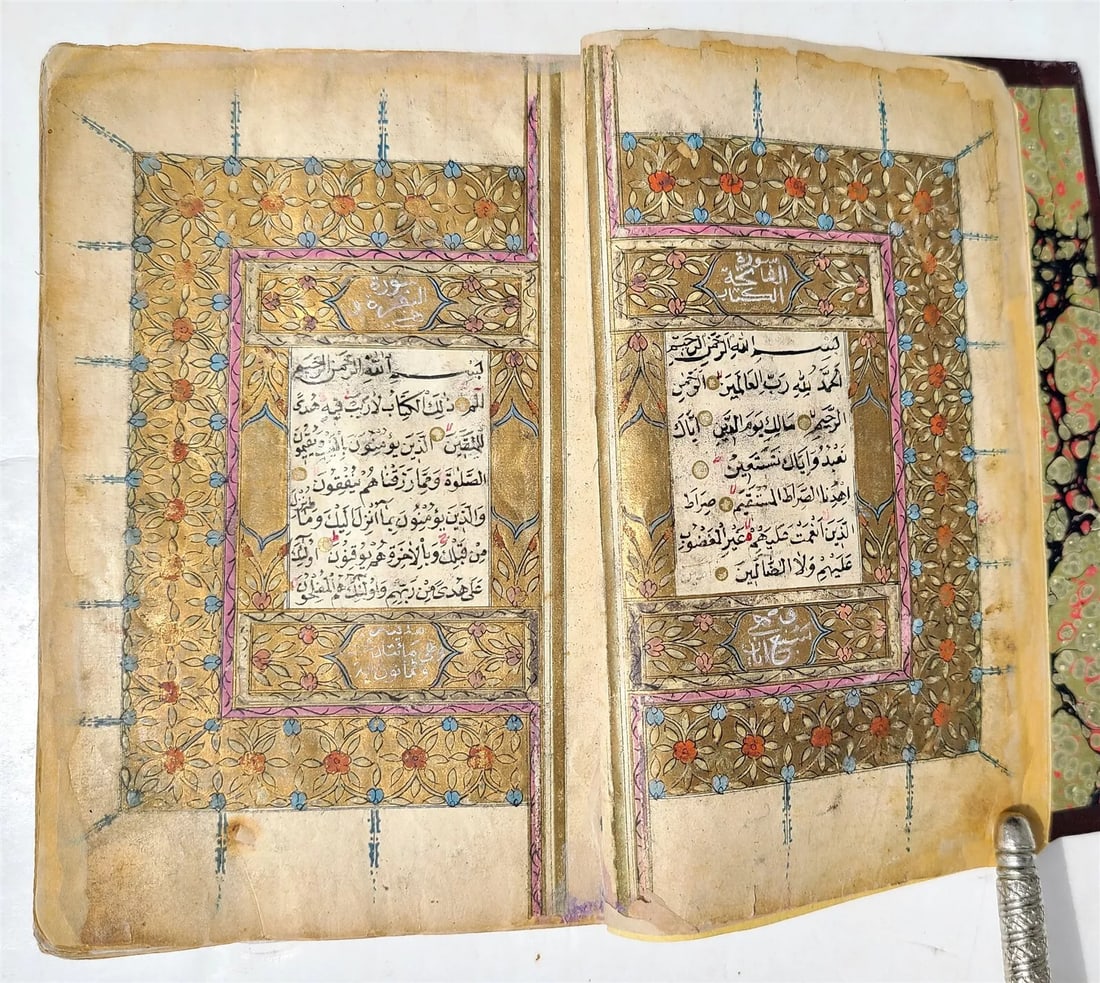 سورة
الفاتحة
الكتاب
بسم الله الرحمن الرحيم
الحمد لله رب العالمين الرحمن
الرحيم مالك يوم الدين اياك
نعبد واياك نستعين
اهدنا الصراط المستقيم صراط
الذين انعمت عليهم غير المغضوب
عليهم ولا الضالين
وهى
سبع اٰيات
سورة
البقرة
بسم الله الرحمن الرحيم
الم ذلك الكتاب لا ريب فيه هدى
للمتقين الذين يومنون بالغيب ويقيمون
الصلوة ومما رزقناهم ينفقون
والذين يومنون بما انزل اليك وما انزل
من قبلك وبالاخرة هم يوقنون اولئك
على هدى من ربهم واولئك هم المفلحون
مائتان
وثمانون